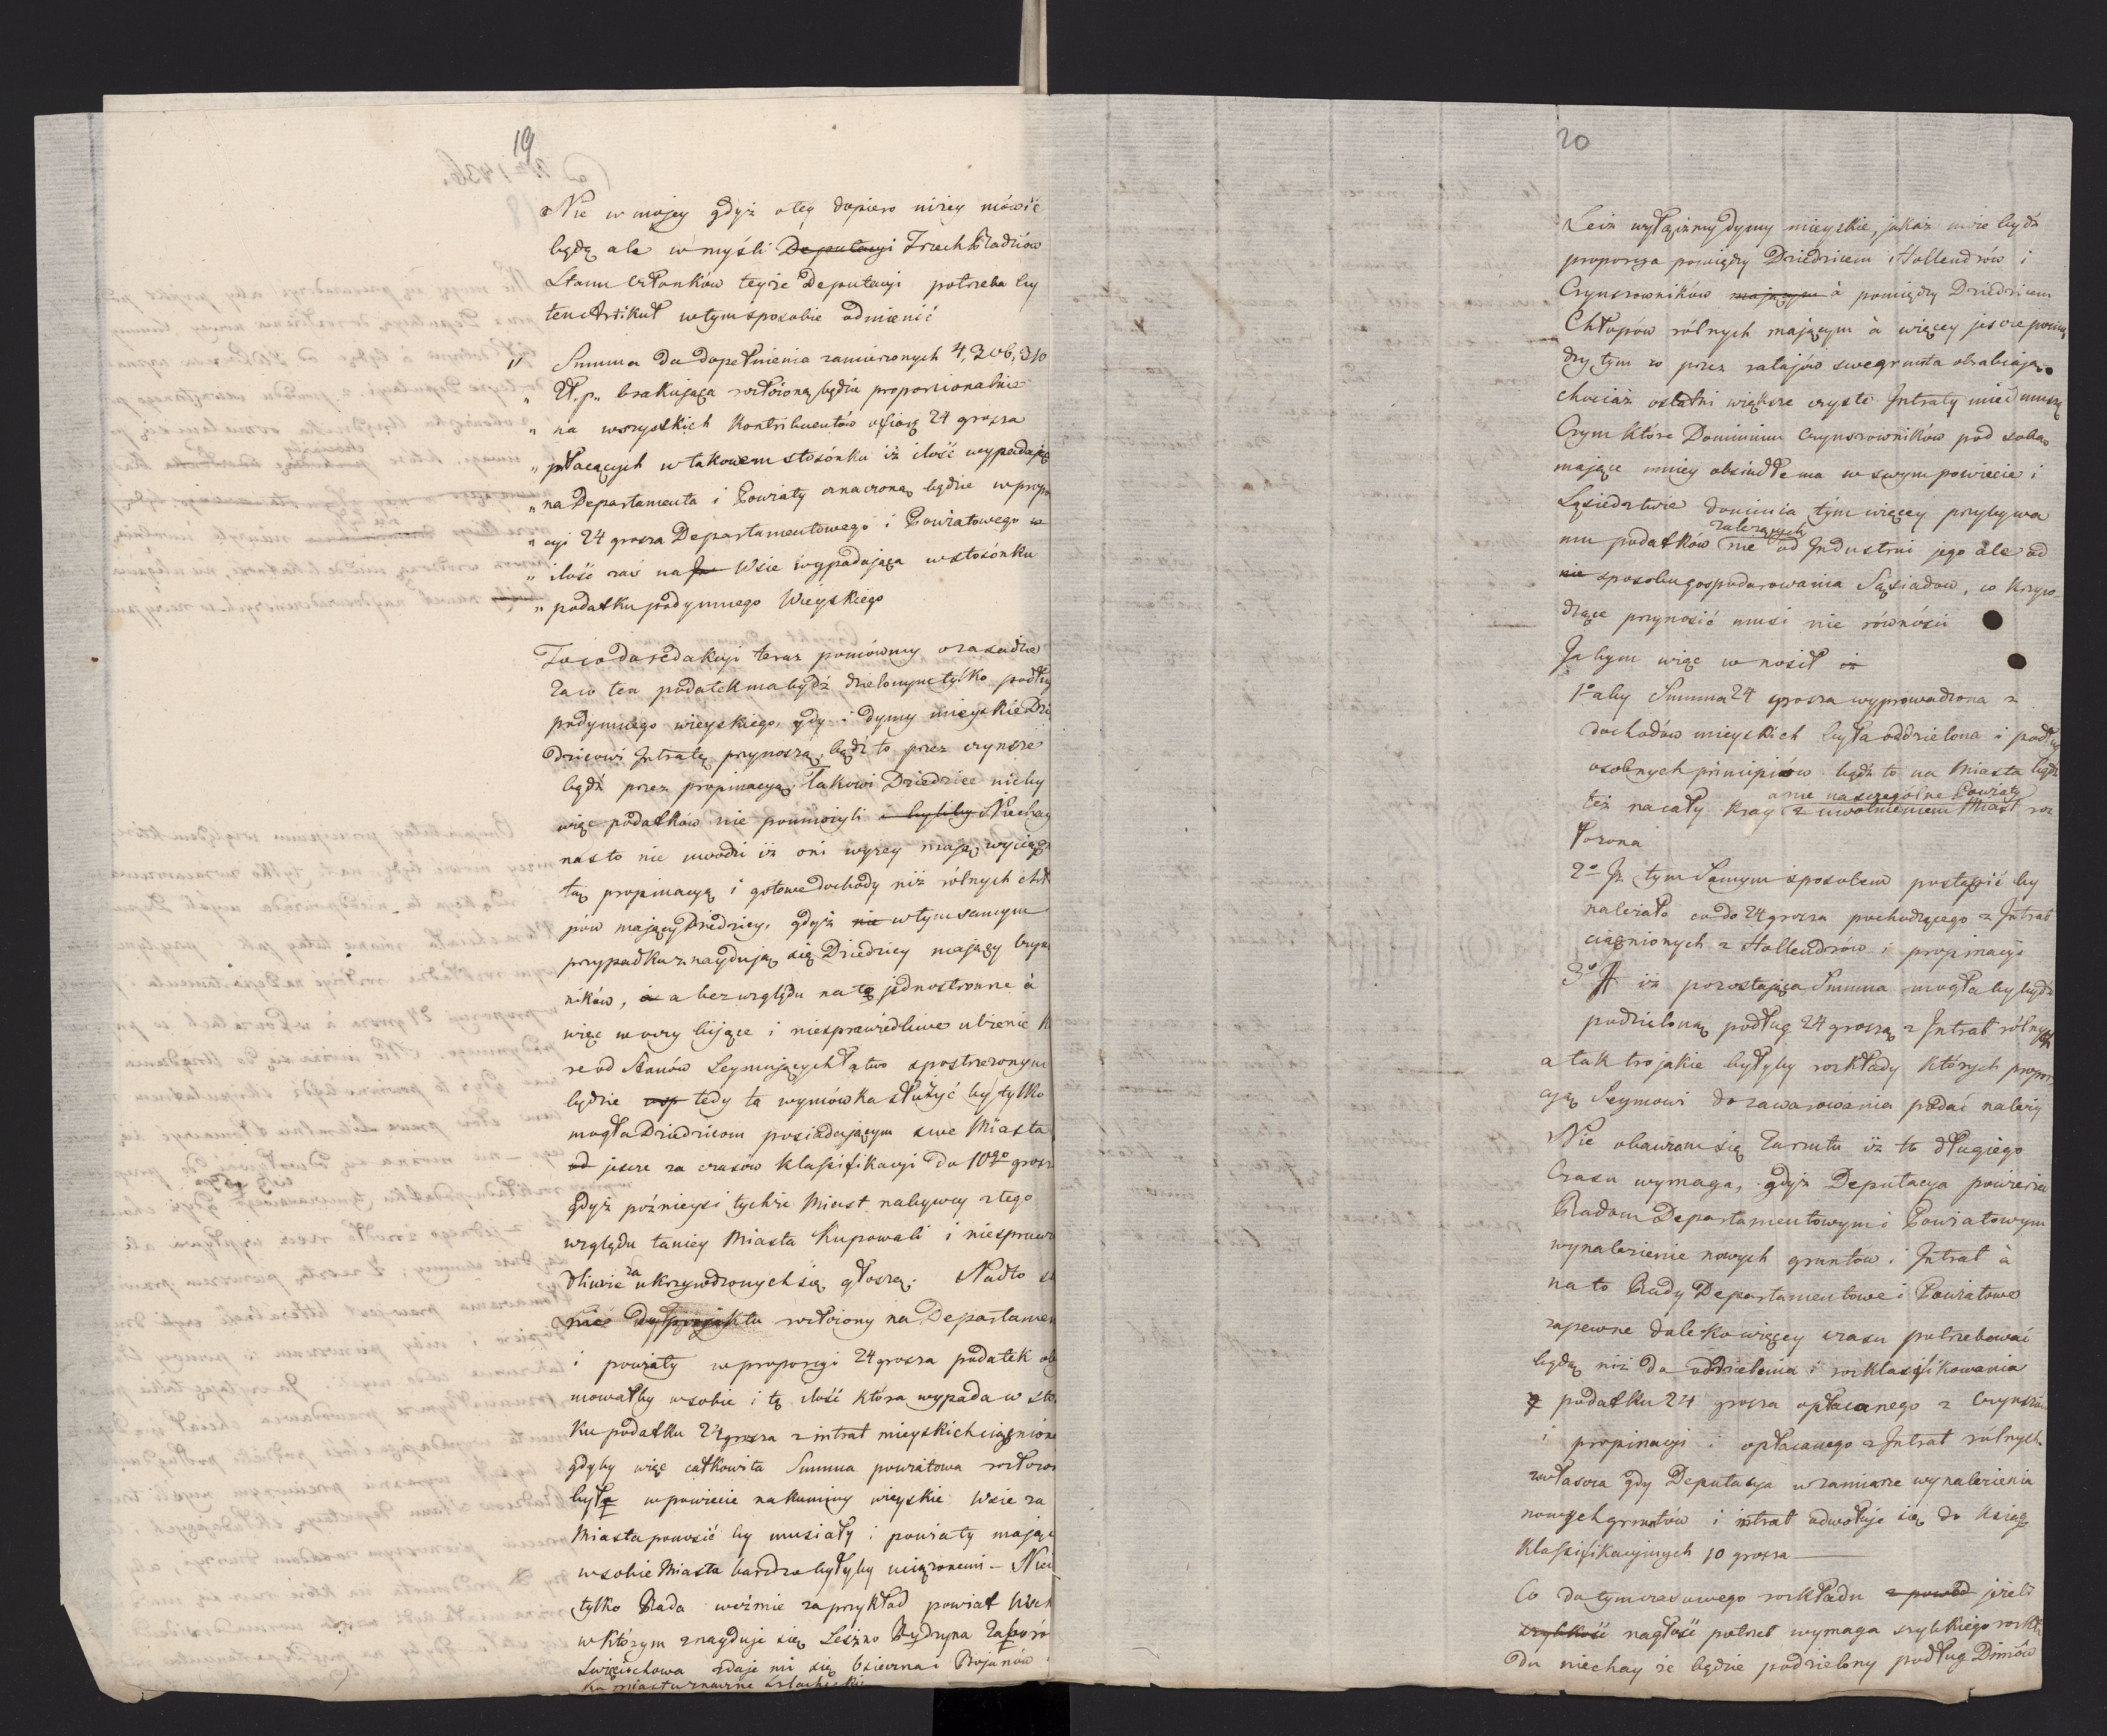 19
Nie w mojey gdyż o tey dopiero niżey mówić
będę ale w myśli Deputacyi Trzech Radców
Stanu Członków teyże Deputacyi potrzeba by
ten Artikuł w tym sposobie odmienić
" Summa do dopełnienia zamierzonych 4,306,310
" Zł. p. brakująca rozłożoną będzie proporcionalnie
" na wszystkich Kontribuentów ofiarę 24 grosza
" płacących w takowem stosónku iż ilość wypadając
" na Departamenta i Powiaty oznaczoną będzie w propo
" cyi 24 grosza Departamentowego i Powiatowego
" ilość zaś na Wsie wypadająca w stosónku
" podatku podymnego Wieyskiego
To co do redakcyi teraz pomówmy o zasadzie
Za co ten podatek ma bydź dzielonym tylko podłu
podymnego wieyskiego, gdy i dymy mieyskie Dzie
dzicowi Intratę przynoszą, bądź to przez czynsze
bądź przez propinacyą, Takowi Dziedzice niby
więc podatków nie ponosiyli i byliby Niechay
nas to nie uwodzi iż oni wyżey mają wyciąg
tą propinacyą i gotowe dochody niż rólnych chło
pów mający Dziedzicy, gdyż nie w tym samym
przypadku znaydują się Dziedzicy mający Czyns
ników, a bez względu na to jednostronne à
więc w oczy bijące i niesprawiedliwe ulżenie k
re od Stanów Seymujących łatwo spostrzeżonym
będzie tedy ta wymówka służyć by tylko
mogła Dziedzicom posiadającym swe Miasta
od jeszcze za czasów Klassifikacyi do 10go grosz
gdyż późnieysi tychże Miast nabywcy z tego
względu taniey Miasta Kupowali i niesprawie
dliwie za ukrzywdzonych się głoszą. Nadto
rozłożony na Departamen
i powiaty w proporcyi 24 grosza podatek oby
mowałby w sobie i tę ilość która wypada w sto
ku podatku 24 grosza z intrat mieyskich ciągnione
gdyby więc całkowita Summa powiatowa rozłożon
była w powiecie na kominy wieyskie Wsie za
Miasta ponosić by musiały i powiaty mające
w sobie Miasta bardzo byłyby uciążonemi – Niech
tylko Rada weźmie za przykład powiat Wsch
w którym znayduje się Leszno Rydzyna Zaboro
Swięciechowa zdaje mi się Osieczna i Bojanów
20
Leiż wyłączmy dymy mieyskie, jakaż może bydź
proporcya pomiędzy Dziedzicem Hollendrów i
Czynszowników mającym à pomiędzy Dziedzicem
Chłopów rólnych mającym à więcey jeszcze pomię
dzy tym co przez ratajów swe grunta obrabiają
chociaż ostatni większe czyste Intraty mieć muszą
Czym które Dominium Czynszowników pod sobą
mające mniey obsiadłe ma w swym powiecie i
Sąsiedztwie dominia tym więcey przybywa
mu podatków zależących nie od Industrii jego ale od
nie sposobu gospodarowania Sąsiadow, co Krzyw-
dzące przynosić musi nie równości
Ja bym więc wnosił iż
1o aby Summa 24 grosza wyprowadzona z
dochodów mieyskich była oddzielona i podług
osobnych principiów bądź to na Miasta bądź
też na cały Kray a nie na szczególne Powiaty z uwolnieniem Miast roz
łożona
2o Iż tym Samym sposobem postąpić by
należało co do 24 grosza pochodzącego z Intrat
ciągnionych z Hollendrów i propinacyi
3o A iż pozostająca Summa mogła by bydź
podzieloną podług 24 grosza z Intrat rólnych
a tak trojakie byłyby rozkłady których propor
cyą Seymowi do zawarowania podać należy
Nie obawiam się Zarzutu iż to długiego
Czasu wymaga, gdyż Deputacya powierza
Radom Departamentowym i Powiatowym
wynalezienie nowych gruntów i Intrat à
na to Rady Departamentowe i Powiatowe
zapewne daleko więcey czasu potrzebować
będą niż do oddzielenia i rozklasifikowania
podatku 24 grosza opłacanego z Czynszów
i propinacyi i opłacanego z Intrat rólnych
zwłaszcza gdy Deputacya w zamiarze wynalezienia
nowych gruntów i intrat odwołuje się do Ksiąg
Klassifikacyinych 10 grosza
Co do tymczasowego rozkładu z powod jeżeli
szybkość nagłość potrzeb wymaga szybkiego rozkła
du niechay że będzie podzielony podług Dimów